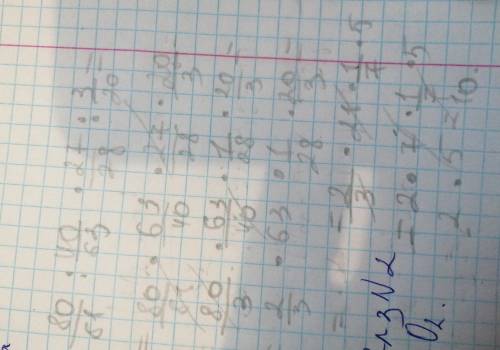 80/81 : 40/63 · 27/28 : 3/20 =
= 80/81 · 63/40 · 27/28 · 20/3
80/3 · 63/40 · 1/28 · 20/3 =
2/3 · 63 · 1/28 · 20/3 =
= 2/3 · 21 · 1/7 · 5
= 2 · 7 · 1/7 · 5
= 2 · 5 = 10.
3 N2
O2.